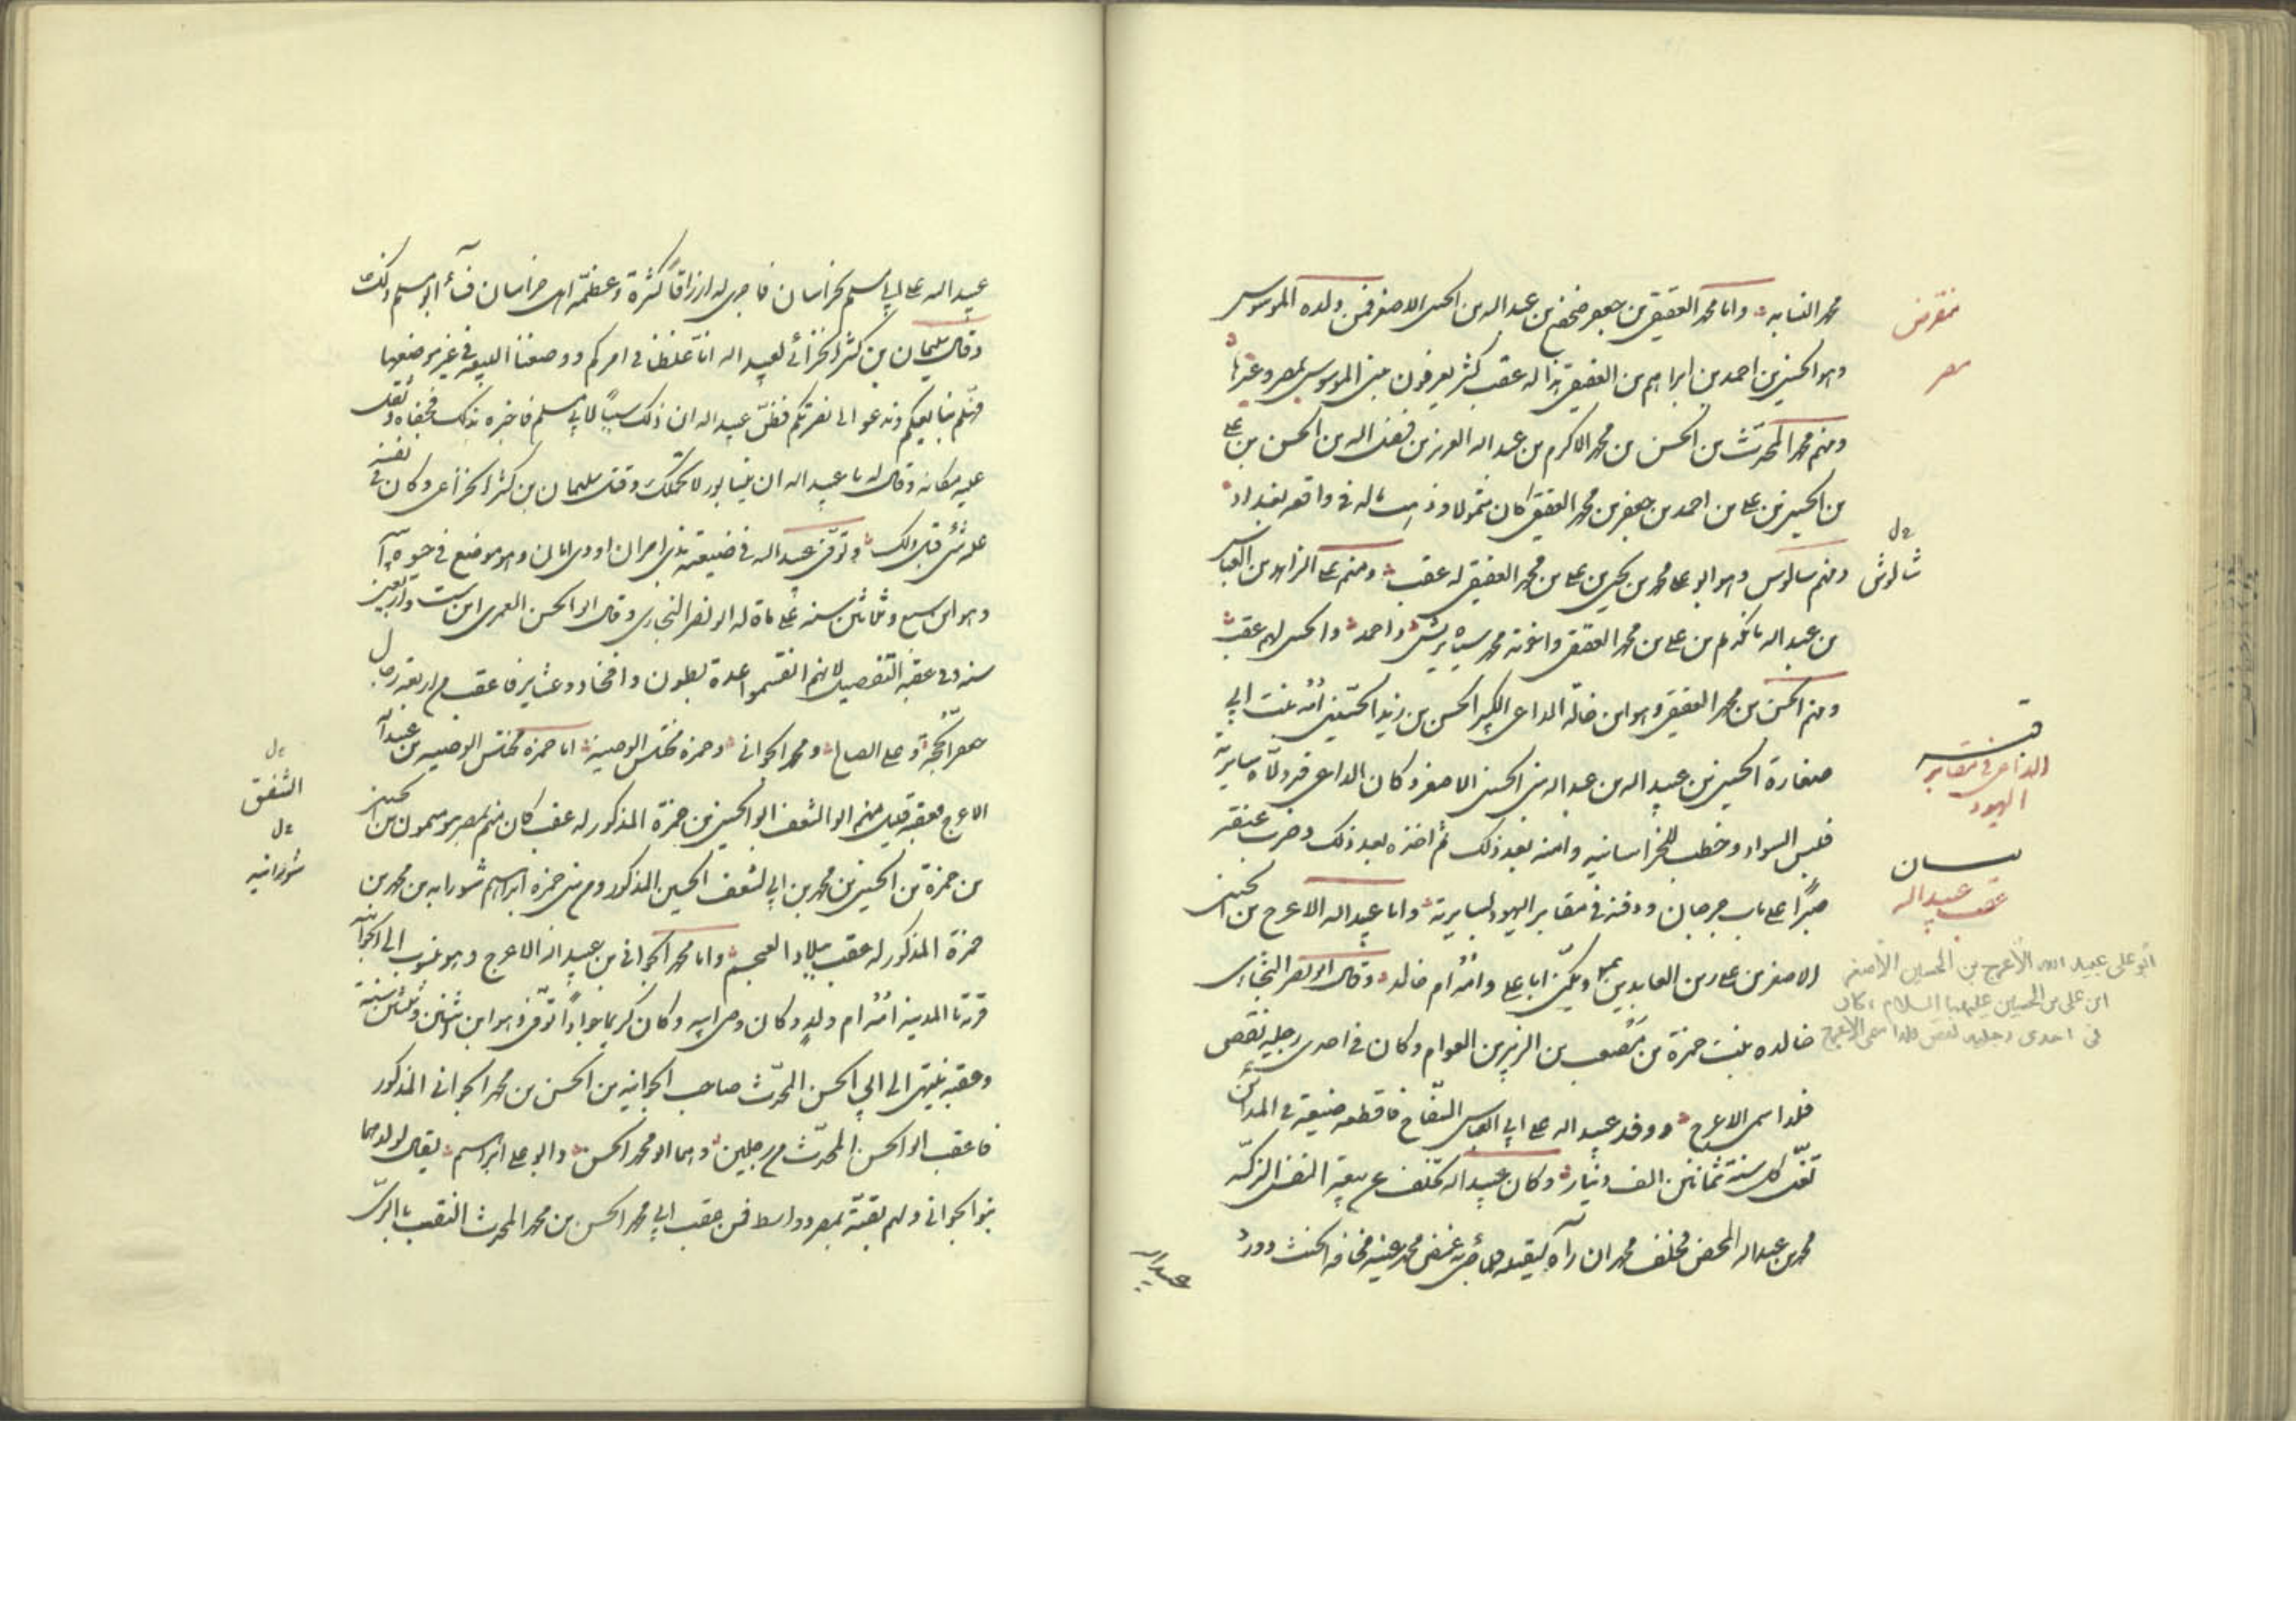 محمد النسابه واما محمد العقيقى بن جعفر صحصح بن عبدالله بن الحسين الاصغر فمن ولده الموسوس
وهو الحسين بن احمد بن ابراهيم بن العقيقى هذا له عقب كثير يعرفون ببنى الموسوس بمصر وغيرها
ومنهم محمد المحدّث بن الحسن بن محمد الاكرم بن عبد الله بن فضل الله بن الحسن بن على
بن الحسين بن على بن احمد بن جعفر بن محمد العقيقى كان متمولا وذهب ماله فى واقعه بغداد
ومنهم سالوس وهو ابو على محمد بن يحيى بن على بن محمد العقيقى له عقب ومنهم على الزاهد بن العباس
بن عبد الله مانكديم بن على بن محمد العقيقى واخوته محمد سياه ريش واحمد والحسن لهم عقب
ومنهم الحسن بن محمد العقيقى وهو ابن خالة الداعى الكبير الحسن بن زيد الحسنى امّه بنت ابى
صغارة الحسين بن عبيد الله بن عبد الله بن الحسين الاصغر وكان الداعى قد ولّاه ساريّة
فلبس السواد وخطب للخراسانيه وامنه بعد ذلك ثم اخذه بعد ذلك وضرب عنقه
صبرًا على باب جرجان ودفنه فى مقابر اليهود بساريه واما عبيد الله الاعرج بن الحسين
الاصغر بن على زين العابدين ويكنّى ابا على وامّه ام خالد وقال ابو نصر البخارى
خالده بنت حمزة بن مصعب بن الزبير بن العوام وكان فى احدى رجليه نقص
فلذا سمى الاعرج ووفد عبيد الله على ابى العباس السفّاح فاقطعه ضيعة فى المدائن
تغلّ كل سنة ثمانين الف دينار وكان عبيد الله تخلف عن بيعة النفس الزكيّه
محمد بن عبد الله المحض فحلف محمد ان رآه ليقتله فلما جئ به غمض محمد عينيه مخافة الحنث وورد
عبيدالله
منقرض
مصر
خ ل
شالوش
قبر
الداعى فى مقابر
اليهود
بيان
عقب عبيد الله
أبو على عبيد الله الأعرج بن الحسين الأصغر
ابن على بن الحسين عليهما السلام كان
فى احدى رجليه نقص فلذا سمى الأعرج
عبيد الله على ابى مسلم بخراسان فاجرى له ارزاقًا كثيرة وعظمّه اهل خراسان فسآء ابو مسلم ذلك
وقال سليمان بن كثير الخزاعى لعبيد الله انّا غلطنا فى امركم ووضعنا البيعه فى غير موضعها
فهلم نبايعكم وندعو الى نصرتكم فظنّ عبيد الله ان ذلك سببًا لابى مسلم فاخبره بذلك فجفاه وثقل
عليه مكانه وقال له يا عبيد الله ان نيسابور لا تحملك وقتل سليمان بن كثير الخزاعى وكان فى نفسه
عليه شئ قبل ذلك وتوفّى عبيد الله فى ضيعته بذى امران او ذى امان وهو موضع فى حيوة ابيه
وهو ابن سبع وثلاثين سنه على ما قاله ابو نصر البخارى وقال ابو الحسن العمرى ابن ست واربعين
سنه وفى عقبه التفصيل لانهم انقسموا عدة بطون وافخاذ وعشاير فاعقب من اربعة رجال
جعفر الحجّة وعلى الصالح ومحمد الجوانى وحمزه مختلس الوصيه اما حمزه مختلس الوصيه بن عبيد الله
الاعرج فعقبه قليل منهم ابو الشقف ابو الحسين بن حمزة المذكور له عقب كان منهم بمصر ميمون بن الحسين
بن حمزة بن الحسين بن محمد بن ابى الشقف الحسين المذكور ومن بنى حمزه ابراهيم شورابه بن محمد بن
حمزة المذكور له عقب ببلاد العجم واما محمد الجوانى بن عبيد الله الاعرج وهو منسوب الى الجوانيّه
قرية بالمدينه امّه ام ولد وكان وصى ابيه وكان كريمًا جوادًا توفّى وهو ابن اثنين وثلثين سنة
وعقبه ينتهى الى ابى الحسن المحدّث صاحب الجوانيه بن الحسن بن محمد الجوانى المذكور
فاعقب ابو الحسن المحدّث من رجلين وهما ابو محمد الحسن وابو على ابراهيم يقال لولدهما
بنو الجوانى ولهم بقيّة بمصر وواسط فمن عقب ابى محمد الحسن بن محمد المحدث النقيب بالرىّ
خ ل
الشفق
خ ل
شورانيه